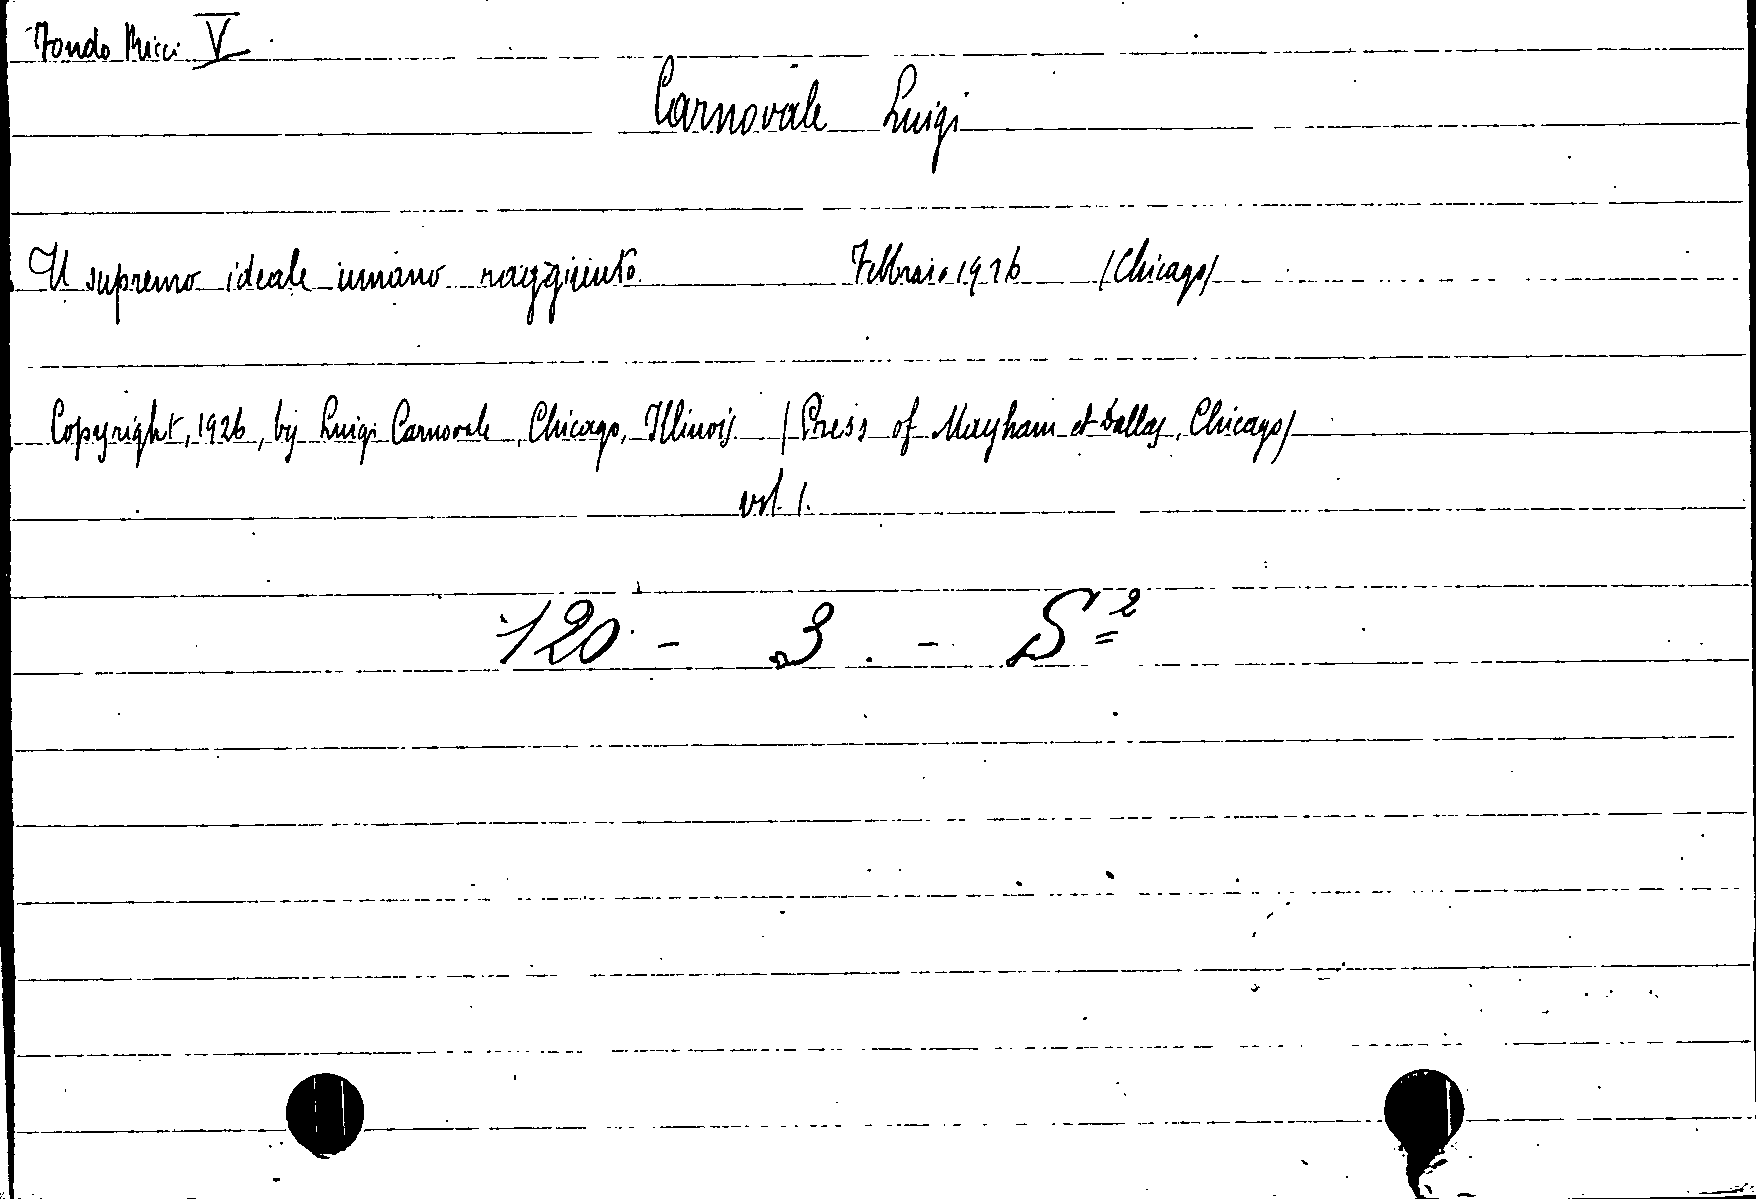 Fondo Ricci V
Carnovale Luigi
Il supremo ideale umano raggiunto. Febbraio 1926 (Chicago)
Copyright, 1926, by Luigi Carnovale, Chicago, Illinois. (Press of Mayham et Dallas, Chicago)
vol. 1.
120 - 3. - S²